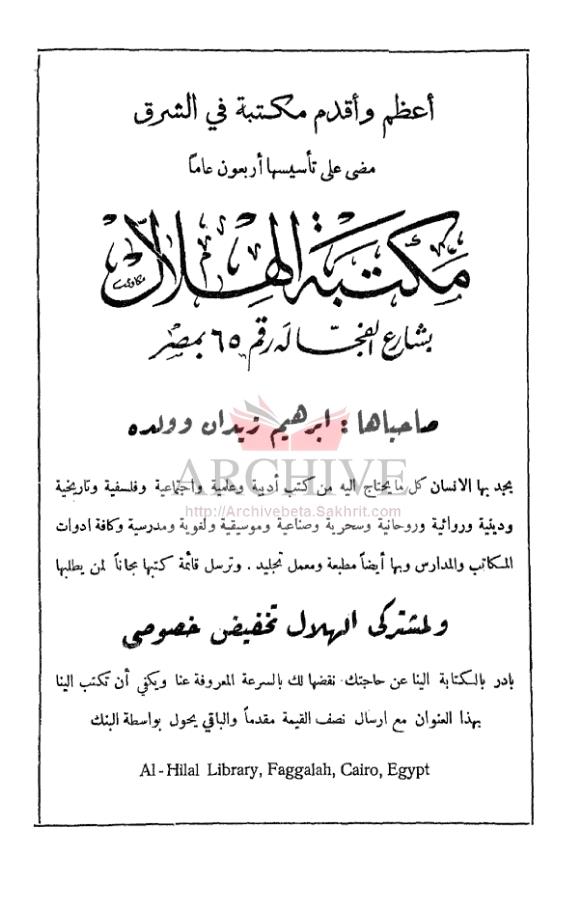 أعظم وأقدم مكتبة في الشرق
مضى على تأسيسها أربعون عاماً
مكتبة الهلال
بشارع الفجالة رقم ٦٥ بمصر
صاحباها : ابرهيم زيدان وولده
ARCHIVE
يجد بها الانسان كل ما يحتاج اليه من كتب أدبية وعلمية واجتماعية وفلسفية وتاريخية
http://Archivebeta.Sakhrit.com
ودينية وروائية وروحانية وسحرية وصناعية وموسيقية ولغوية ومدرسية وكافة ادوات
المكاتب والمدارس وبها أيضاً مطبعة ومعمل تجليد . وترسل قائمة كتبها مجاناً لمن يطلبها
ولمشتركي الهلال تخفيض خصوصي
بادر بالكتابة الينا عن حاجتك نقضها لك بالسرعة المعروفة عنا ويكفي أن تكتب الينا
بهذا العنوان مع ارسال نصف القيمة مقدماً والباقي يحول بواسطة البنك
Al-Hilal Library, Faggalah, Cairo, Egypt